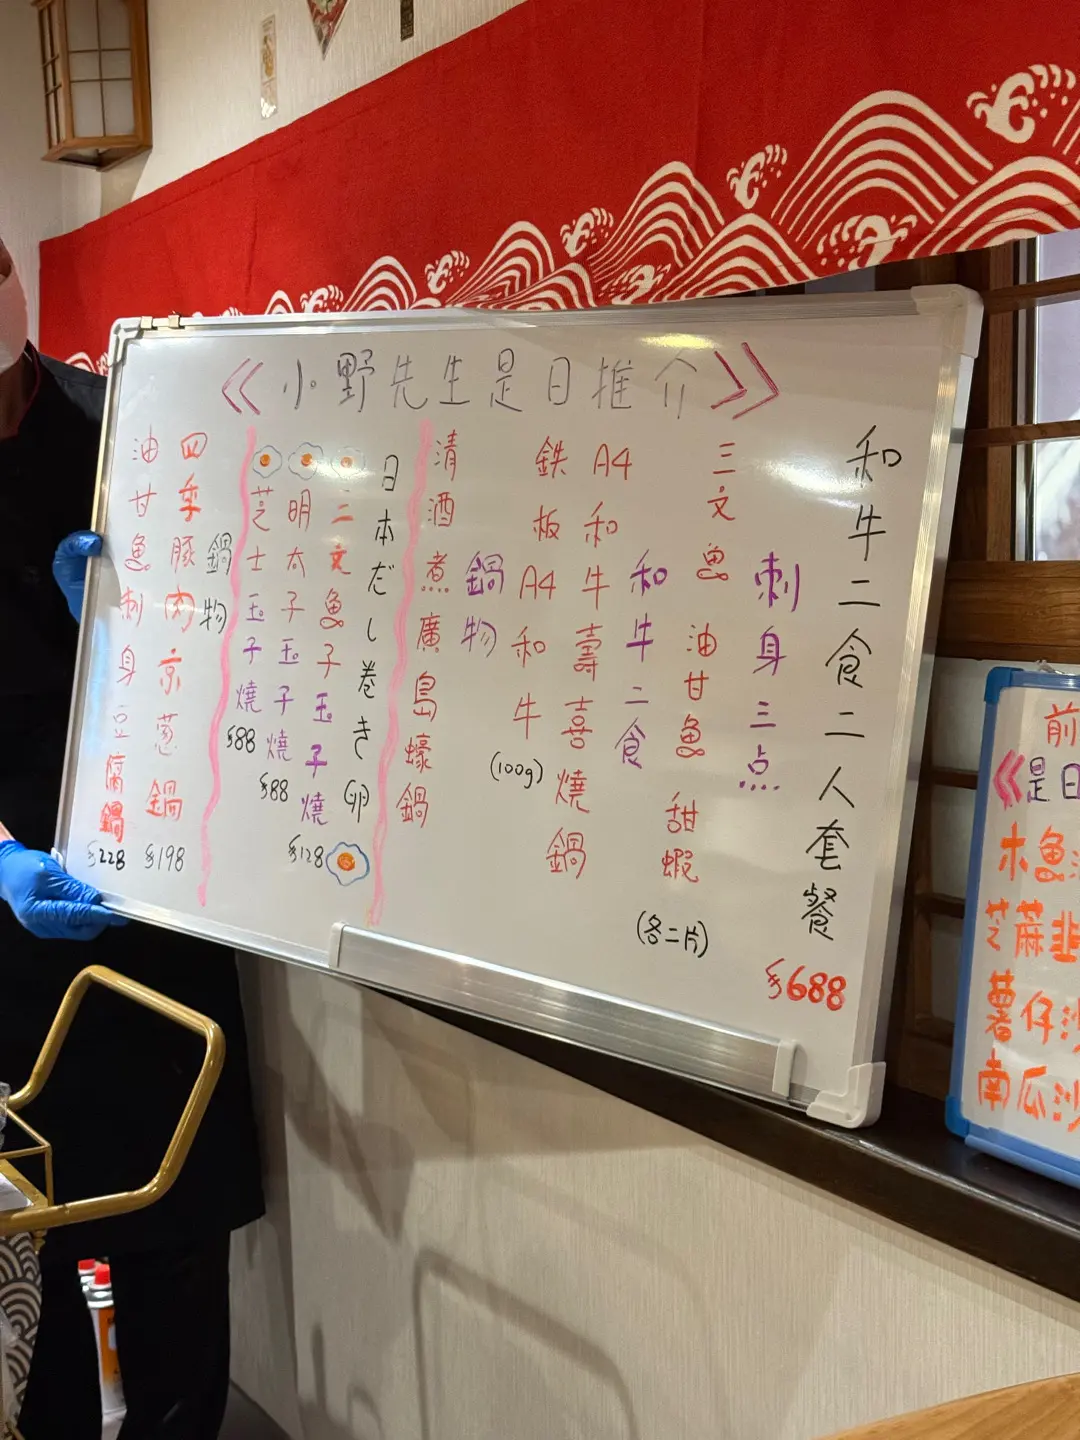 《小野先生是日推介》
和牛二食二人套餐
$688
刺身三点
三文魚 油甘魚 甜蝦
(各二片)
和牛二食
A4和牛壽喜燒鍋
鉄板A4和牛
(100g)
鍋物
清酒煮廣島蠔鍋
日本だし巻き卵
三文魚子玉子燒
$128
明太子玉子燒
$88
芝士玉子燒
$88
鍋物
四季豚肉京蔥鍋
$198
油甘魚刺身豆腐鍋
$228
前
《是日
木魯
芝蔴韭
薯仔沙
南瓜沙